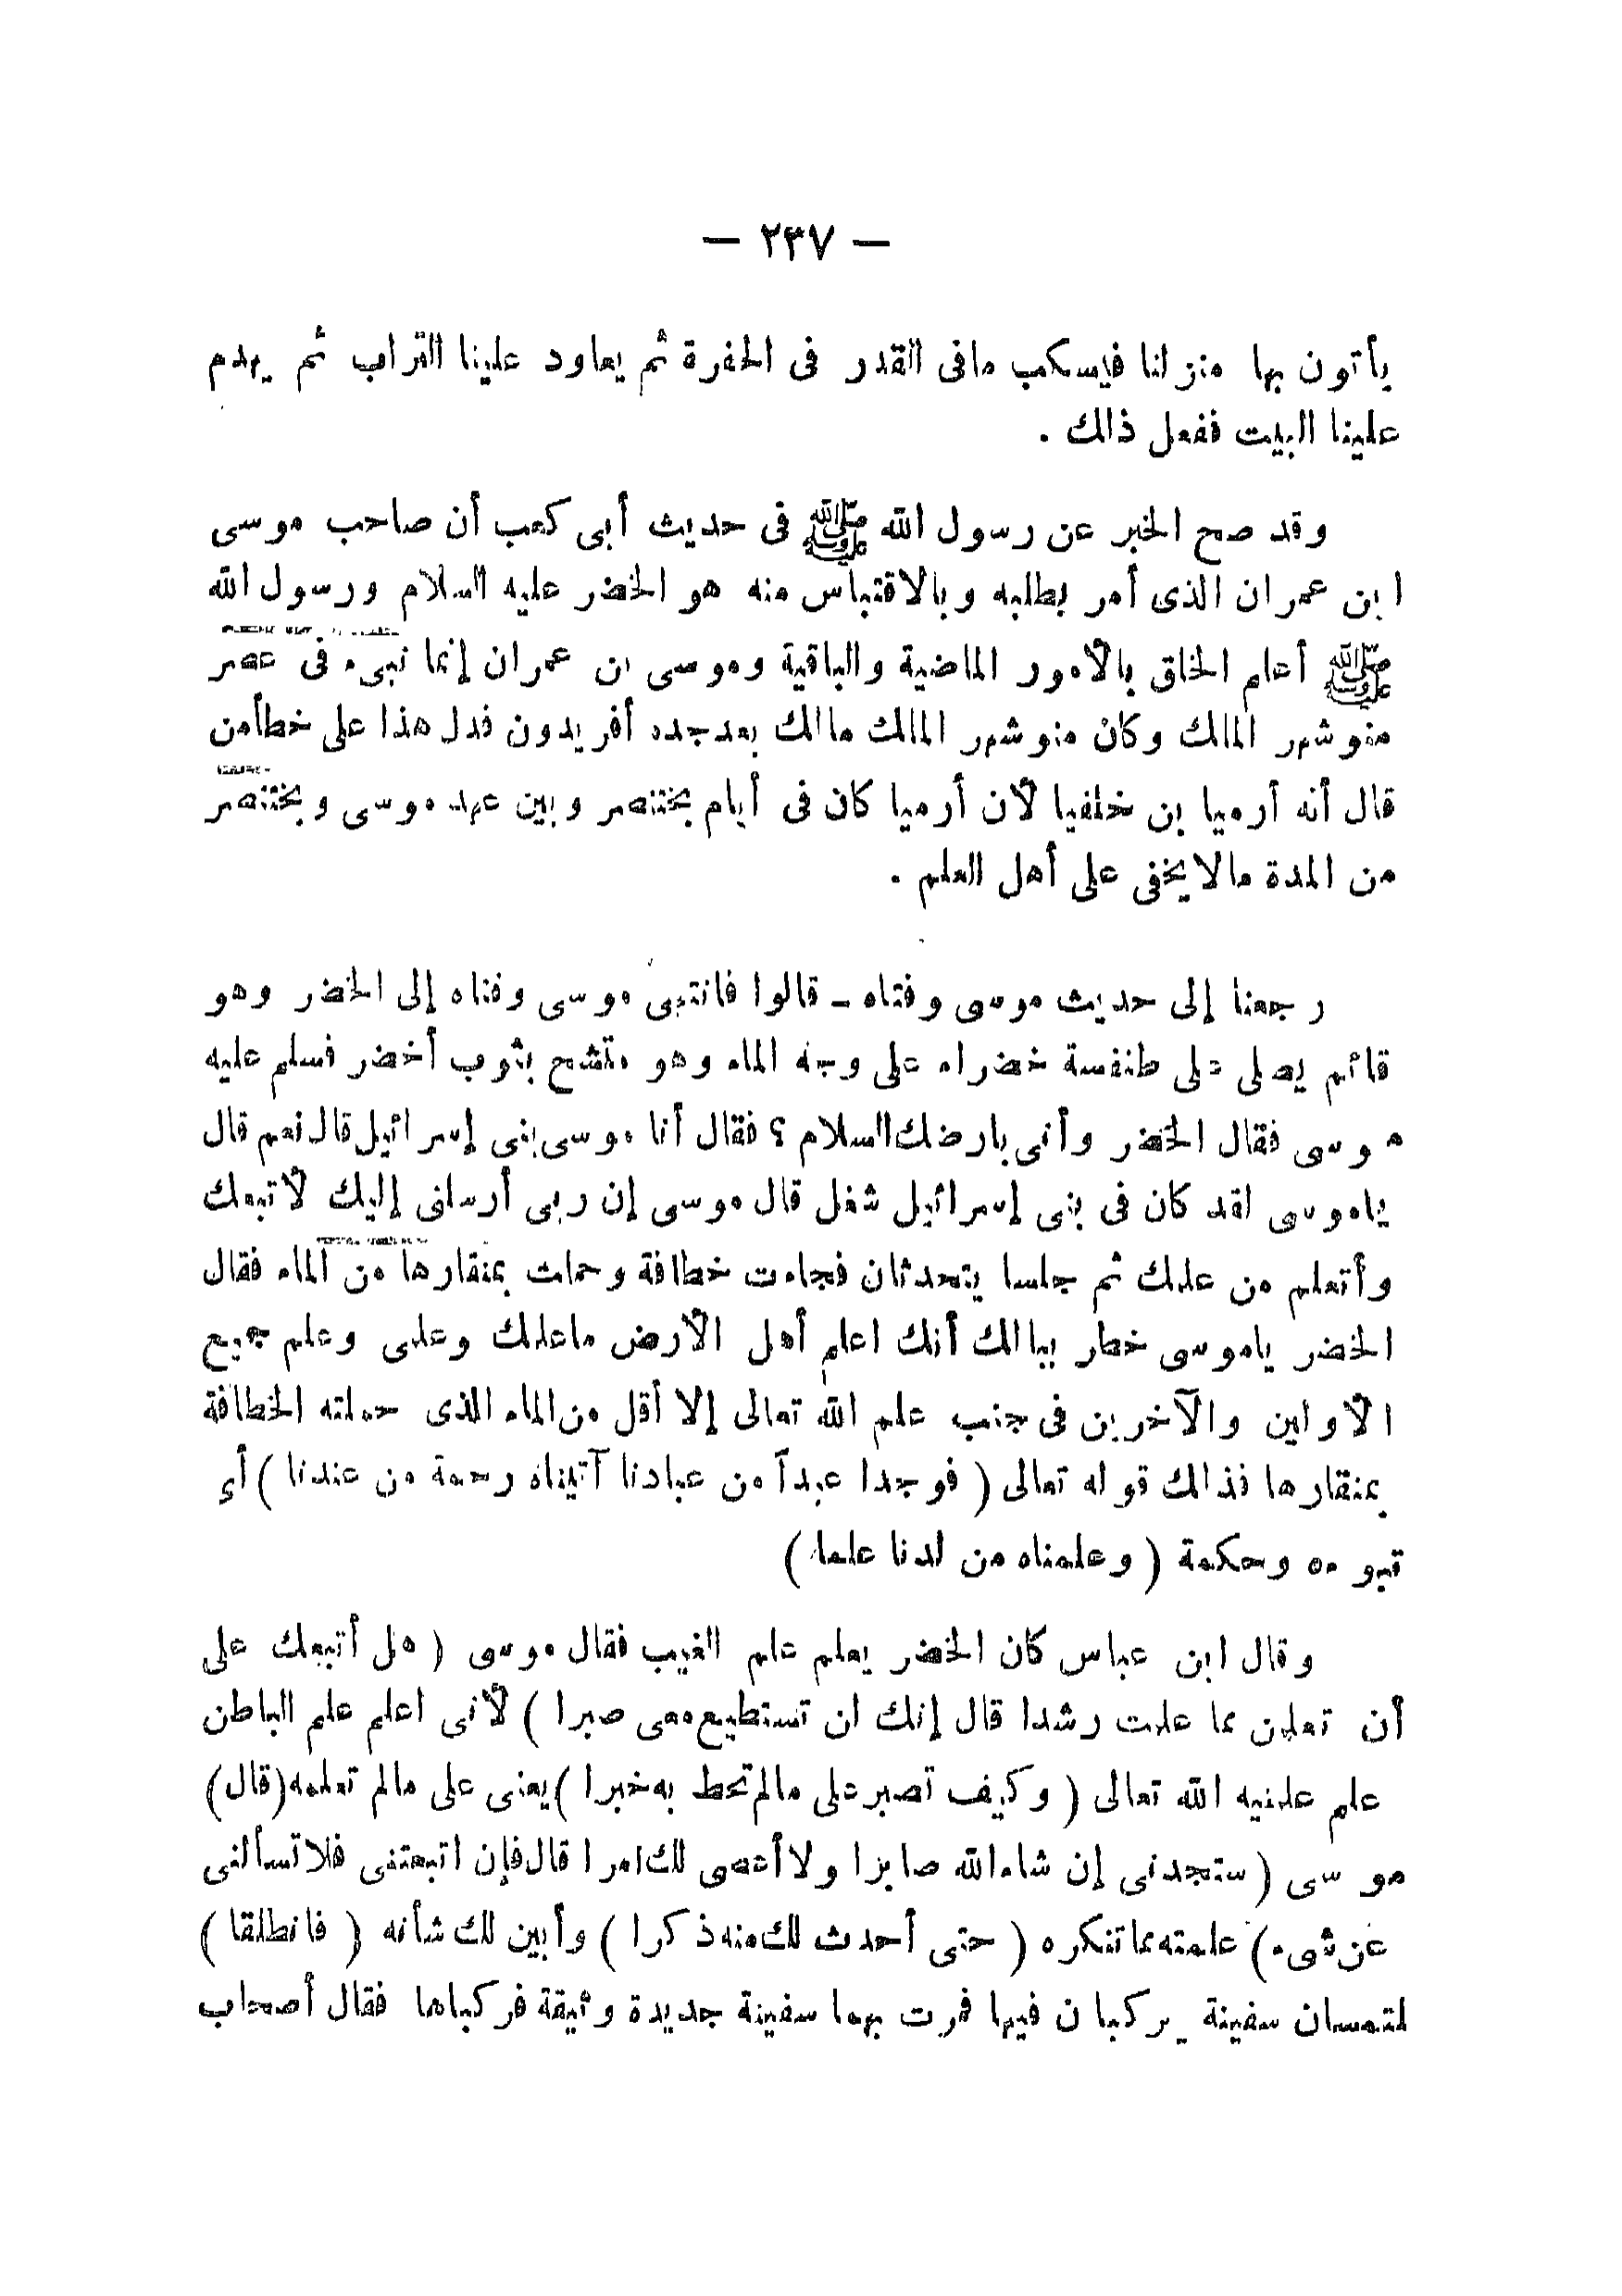 — ٢٣٧ —
يأتون بها منزلنا فيسكب مافى القدر فى الحفرة ثم يعاود علينا التراب ثم يهدم
علينا البيت ففعل ذلك .
وقد صح الخبر عن رسول الله ﷺ فى حديث أبى كعب أن صاحب موسى
ابن عمران الذى أمر بطلبه وبالاقتباس منه هو الخضر عليه السلام ورسول الله
ﷺ أعلم الخلق بالأمور الماضية والباقية وموسى بن عمران إنما نبىء فى عصر
منوشهر الملك وكان منوشهر الملك مالك بعد جده أفريدون فدل هذا على خطأ من
قال أنه أرميا بن خلفيا لأن أرميا كان فى أيام بختنصر وبين عهد موسى وبختنصر
من المدة مالا يخفى على أهل العلم .
رجعنا إلى حديث موسى وفتاه ـ قالوا فانتهى موسى وفتاه إلى الخضر وهو
قائم يصلى على طنفسة خضراء على وجه الماء وهو متشح بثوب أخضر فسلم عليه
موسى فقال الخضر وأنى بارضك السلام ؟ فقال أنا موسى بنى إسرائيل قال نعم قال
ياموسى لقد كان فى بنى إسرائيل شغل قال موسى إن ربى أرسلنى إليك لأتبعك
وأتعلم من علمك ثم جلسا يتحدثان فجاءت خطافة وحملت بمنقارها من الماء فقال
الخضر ياموسى خطر ببالك أنك اعلم أهل الأرض ماعلمك وعلمى وعلم جميع
الأولين والآخرين فى جنب علم الله تعالى إلا أقل من الماء الذى حملته الخطافة
بمنقارها فذلك قوله تعالى ( فوجدا عبدآ من عبادنا آتيناه رحمة من عندنا ) أى
وحكمة ( وعلمناه من لدنا علما )
وقال ابن عباس كان الخضر يعلم علم الغيب فقال موسى ( هل أتبعك على
أن تعلمن مما علمت رشدا قال إنك لن تستطيع معى صبرا ) لأنى اعلم علم الباطن
علم علمنيه الله تعالى ( وكيف تصبر على مالم تحط به خبرا ) يعنى على مالم تعلمه (قال)
موسى ( ستجدنى إن شاء الله صابرا ولا أعصى لك امرا قال فإن اتبعتنى فلا تسألنى
عن شىء ) علمته مما تنكره ( حتى أحدث لك منه ذكرا ) وأبين لك شأنه ( فانطلقا )
لتمسان سفينة يركبان فيها فمرت بهما سفينة جديدة وثيقة فركباها فقال أصحاب